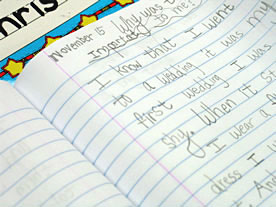 nris
November 15 Why was t
Important to me!
I know that I went
to a wedding it was my
first wedding I was
shy. When it s
I wear a
dress I w